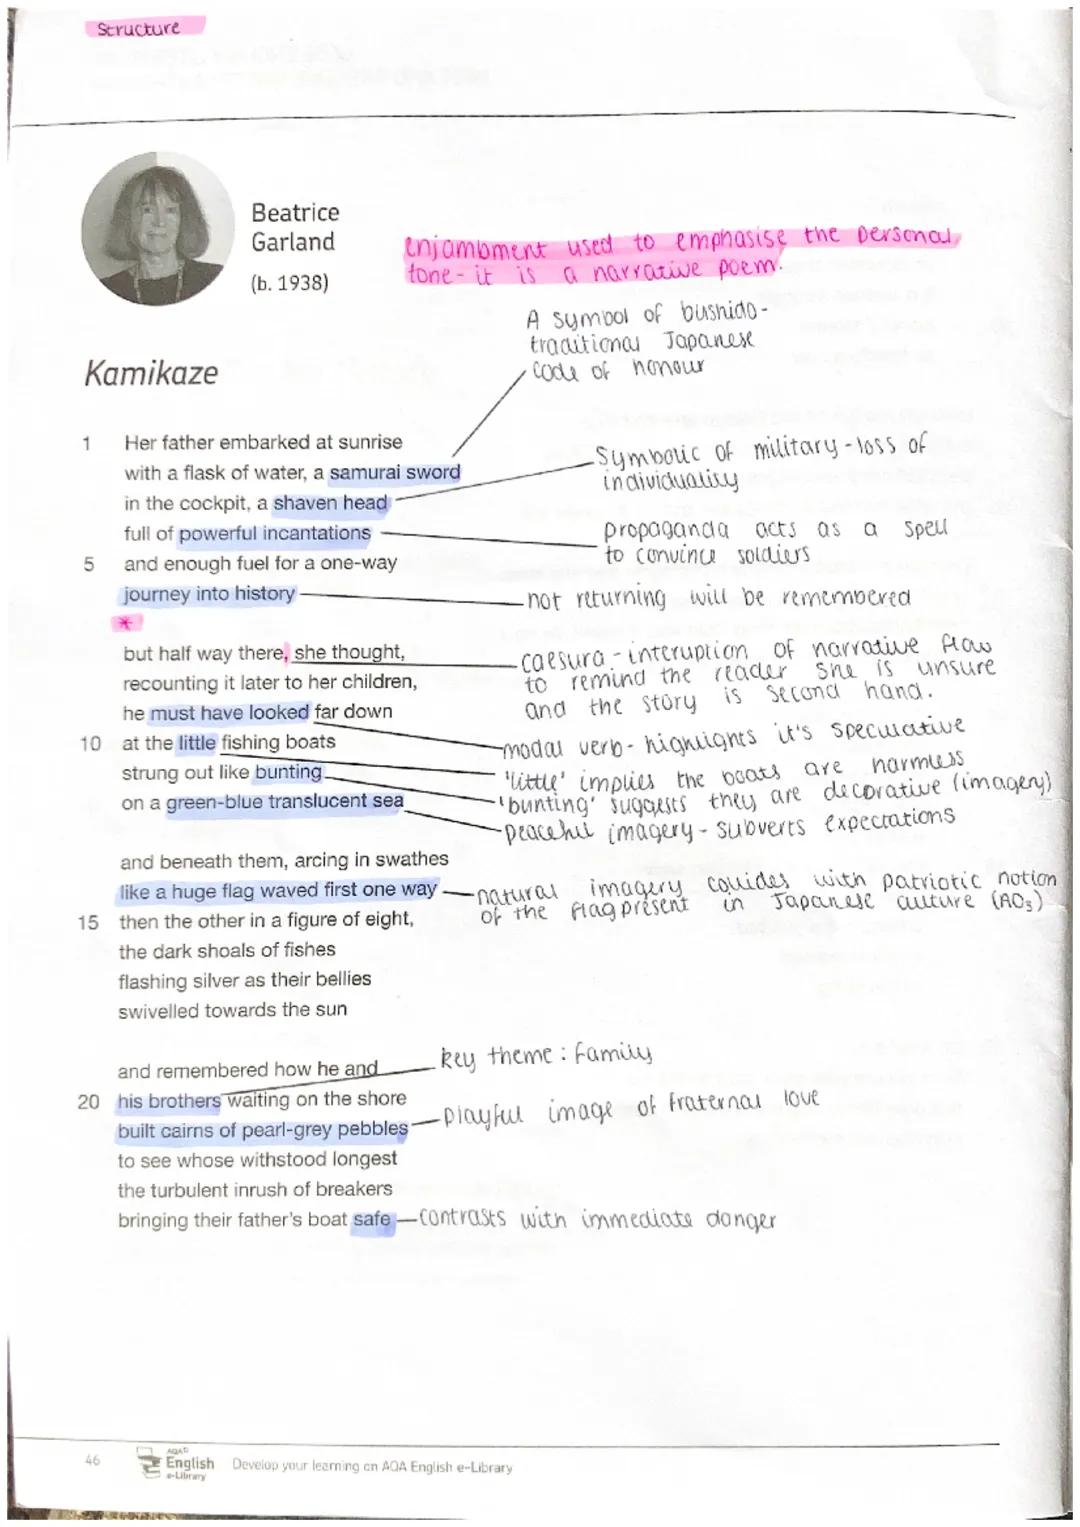 Structure
Beatrice
Garland
(b. 1938)
enjambment used to emphasise the personal
tone - it is a narrative poem.
A symbol of bushido -
traditional Japanese
code of honour
Kamikaze
1 Her father embarked at sunrise
with a flask of water, a samurai sword
in the cockpit, a shaven head
full of powerful incantations
5 and enough fuel for a one-way
journey into history
*
Symbolic of military - loss of
individuality
propaganda acts as a spell
to convince soldiers
not returning will be remembered
but half way there, she thought,
recounting it later to her children,
he must have looked far down
10 at the little fishing boats
strung out like bunting
on a green-blue translucent sea
caesura - interuption of narrative flow
to remind the reader she is unsure
and the story is second hand.
modal verb - highlights it's speculative
'little' implies the boats are harmless
'bunting' suggests they are decorative (imagery)
peaceful imagery - subverts expectations
and beneath them, arcing in swathes
like a huge flag waved first one way
15 then the other in a figure of eight,
the dark shoals of fishes
flashing silver as their bellies
swivelled towards the sun
natural imagery collides with patriotic notion
of the flag present in Japanese culture (AO3)
and remembered how he and
20 his brothers waiting on the shore
built cairns of pearl-grey pebbles
to see whose withstood longest
the turbulent inrush of breakers
bringing their father's boat safe
key theme: family
playful image of fraternal love
contrasts with immediate danger
46
AQA
English
e-Library
Develop your learning on AQA English e-Library